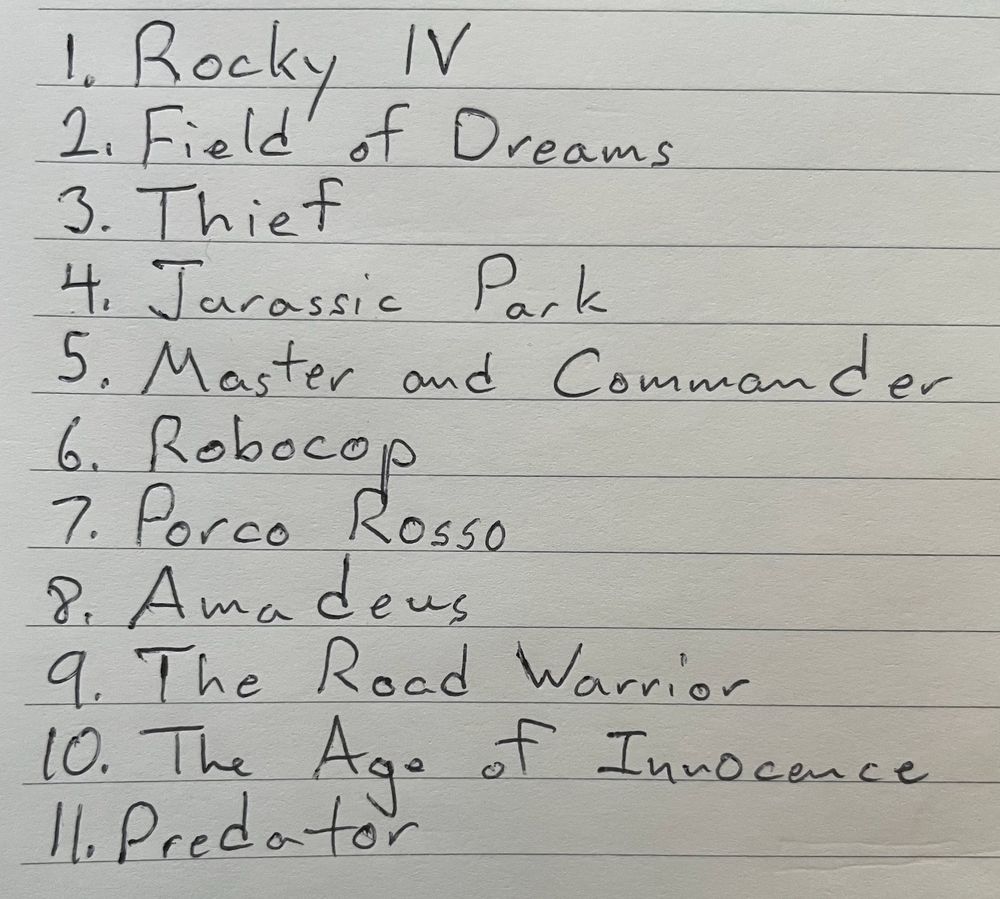 1. Rocky IV
2. Field of Dreams
3. Thief
4. Jurassic Park
5. Master and Commander
6. Robocop
7. Porco Rosso
8. Amadeus
9. The Road Warrior
10. The Age of Innocence
11. Predator